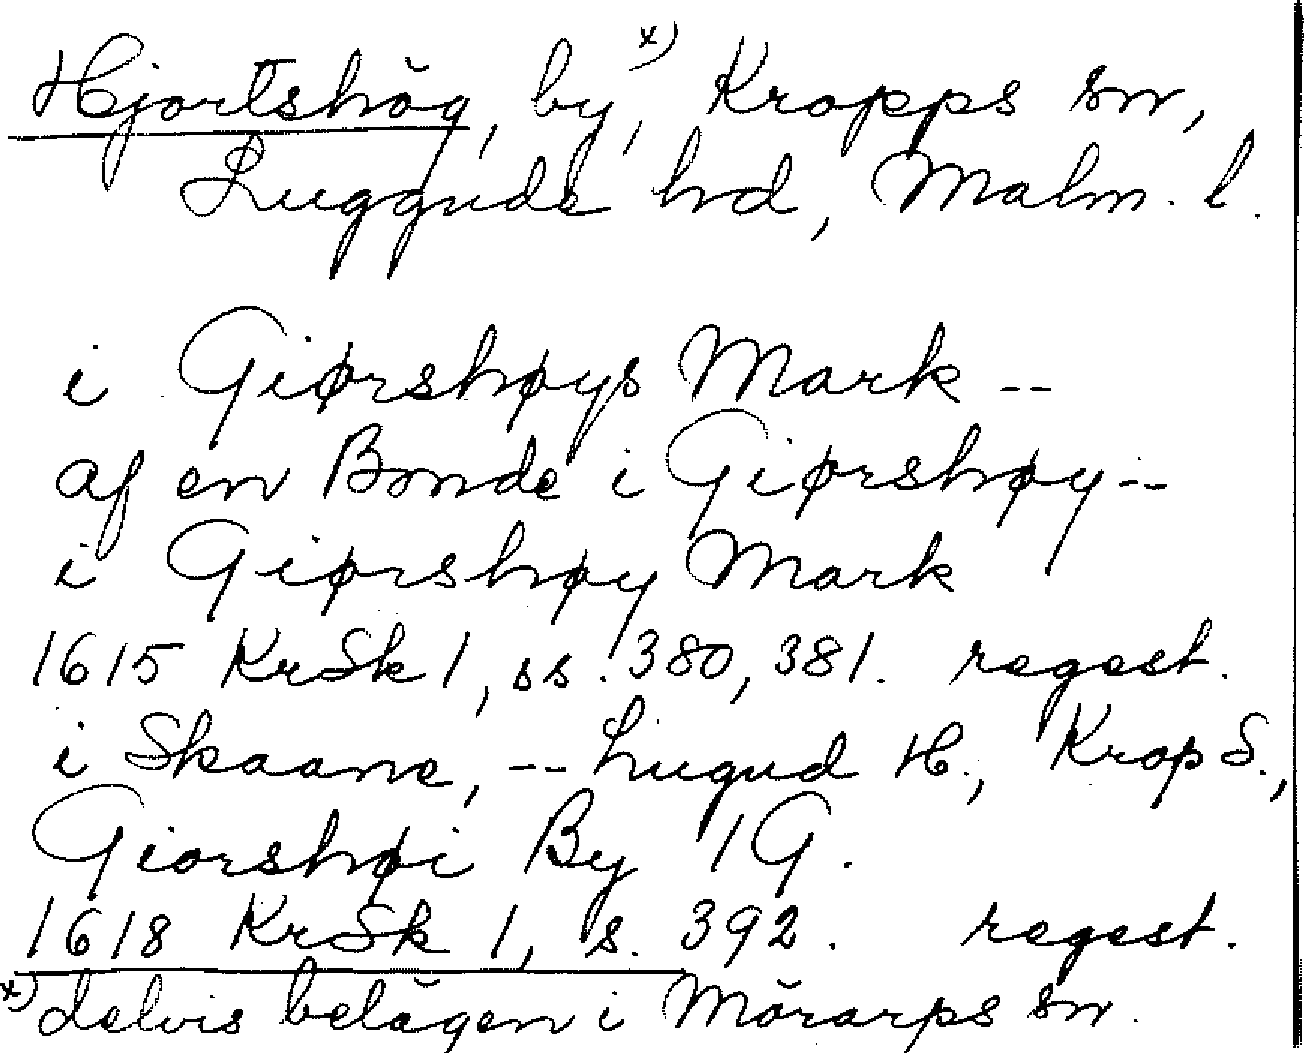 Hjortshög, by,ˣ⁾ Kropps sn,
Luggude hd, Malm. l.
i Giørshøys Mark --
af en Bonde i Giørshøy --
i Giørshøy Mark
1615 KrSk 1, ss. 380, 381. regest.
i Skaane, -- Lugud H., Krop S.,
Giorshøi By 1 G.
1618 KrSk 1, s. 392. regest.
ˣ⁾ delvis belägen i Mörarps sn.